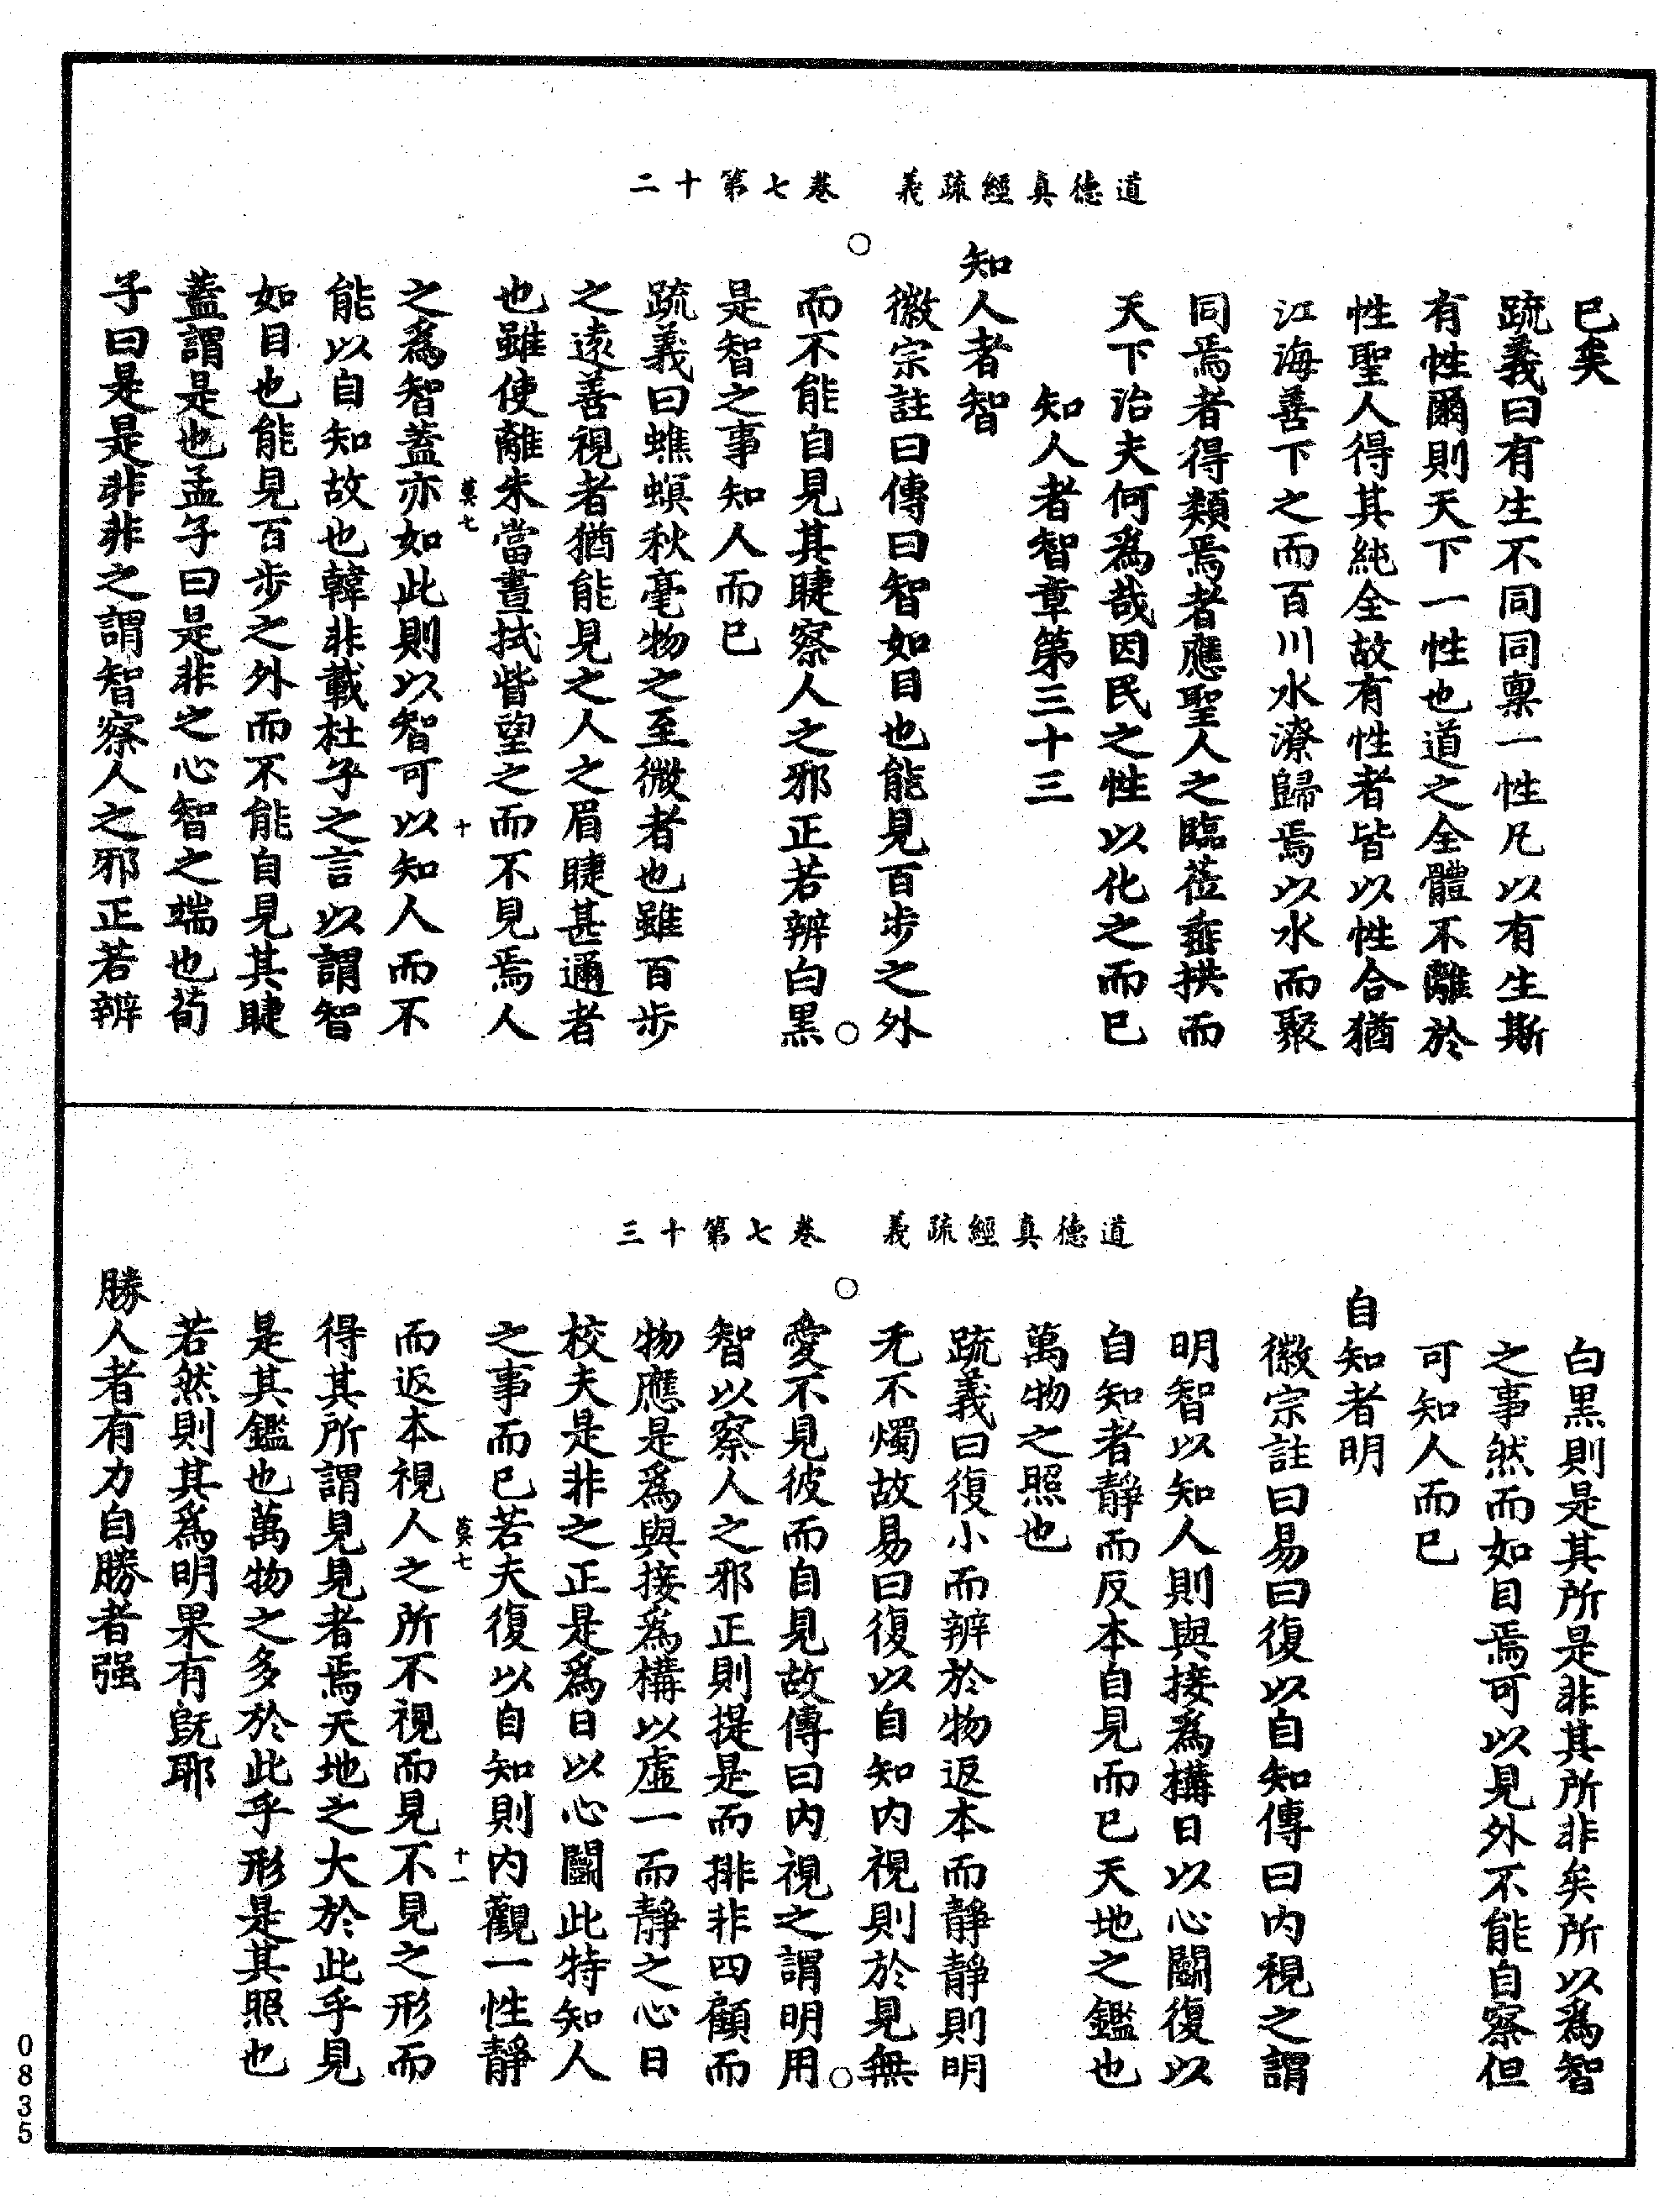 道德真經疏義　卷七第十二
已矣
疏義曰有生不同同稟一性凡以有生斯
有性爾則天下一性也道之全體不離於
性聖人得其純全故有性者皆以性合猶
江海善下之而百川水潦歸焉以水而聚
同焉者得類焉者應聖人之臨莅垂拱而
天下治夫何爲哉因民之性以化之而已
知人者智章第三十三
知人者智
徽宗註曰傳曰智如目也能見百步之外
而不能自見其睫察人之邪正若辨白黑
是智之事知人而已
疏義曰蟭螟秋毫物之至微者也雖百步
之遠善視者猶能見之人之眉睫甚邇者
也雖使離朱當晝拭眥望之而不見焉人
莫七　十
之爲智蓋亦如此則以智可以知人而不
能以自知故也韓非載杜子之言以謂智
如目也能見百步之外而不能自見其睫
蓋謂是也孟子曰是非之心智之端也荀
子曰是是非非之謂智察人之邪正若辨
道德真經疏義　卷七第十三
白黑則是其所是非其所非矣所以爲智
之事然而如目焉可以見外不能自察但
可知人而已
自知者明
徽宗註曰易曰復以自知傳曰內視之謂
明智以知人則與接爲構日以心鬭復以
自知者靜而反本自見而已天地之鑑也
萬物之照也
疏義曰復小而辨於物返本而靜靜則明
无不燭故易曰復以自知內視則於見無
愛不見彼而自見故傳曰內視之謂明用
智以察人之邪正則提是而排非四顧而
物應是爲與接爲構以虛一而靜之心日
校夫是非之正是爲日以心鬭此特知人
之事而已若夫復以自知則內觀一性靜
莫七　十一
而返本視人之所不視而見不見之形而
得其所謂見見者焉天地之大於此乎見
是其鑑也萬物之多於此乎形是其照也
若然則其爲明果有旣耶
勝人者有力自勝者强
0835